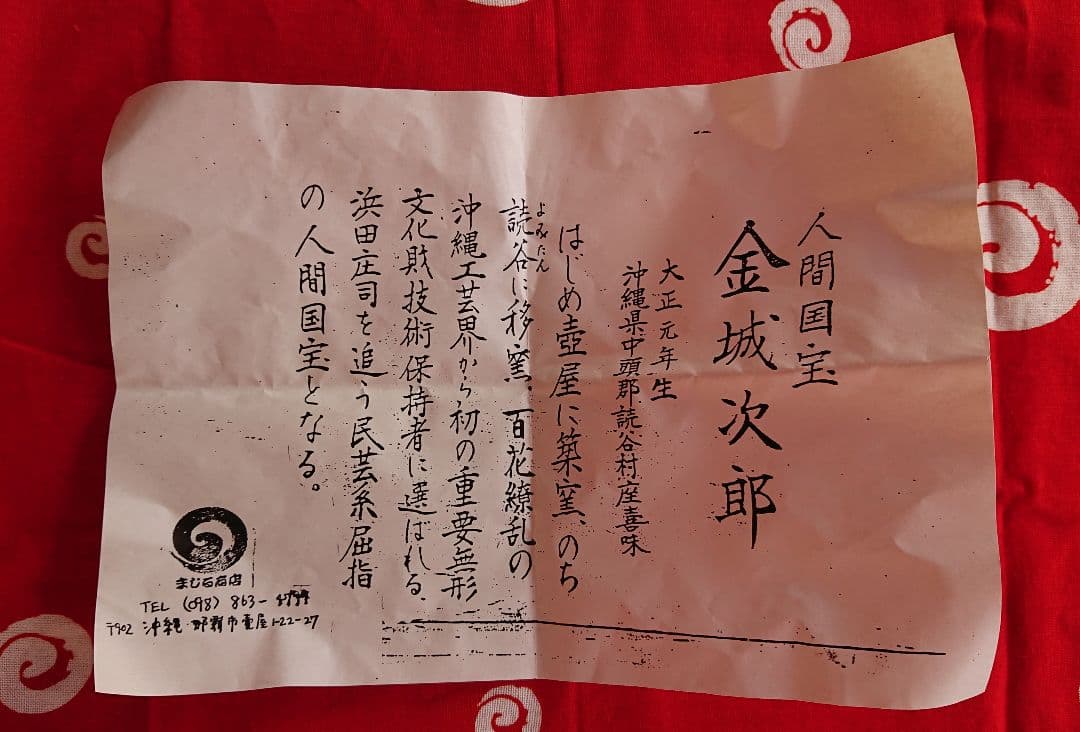 人間国宝
金城次郎
大正元年生
沖縄県中頭郡読谷村座喜味
はじめ壺屋に築窯、のち
よみたん
読谷に移窯、百花繚乱の
沖縄工芸界から初の重要無形
文化財技術保持者に選ばれる、
浜田庄司を追う民芸系屈指
の人間国宝となる。
TEL (098) 863-
〒902 沖縄・那覇市壷屋1-22-27